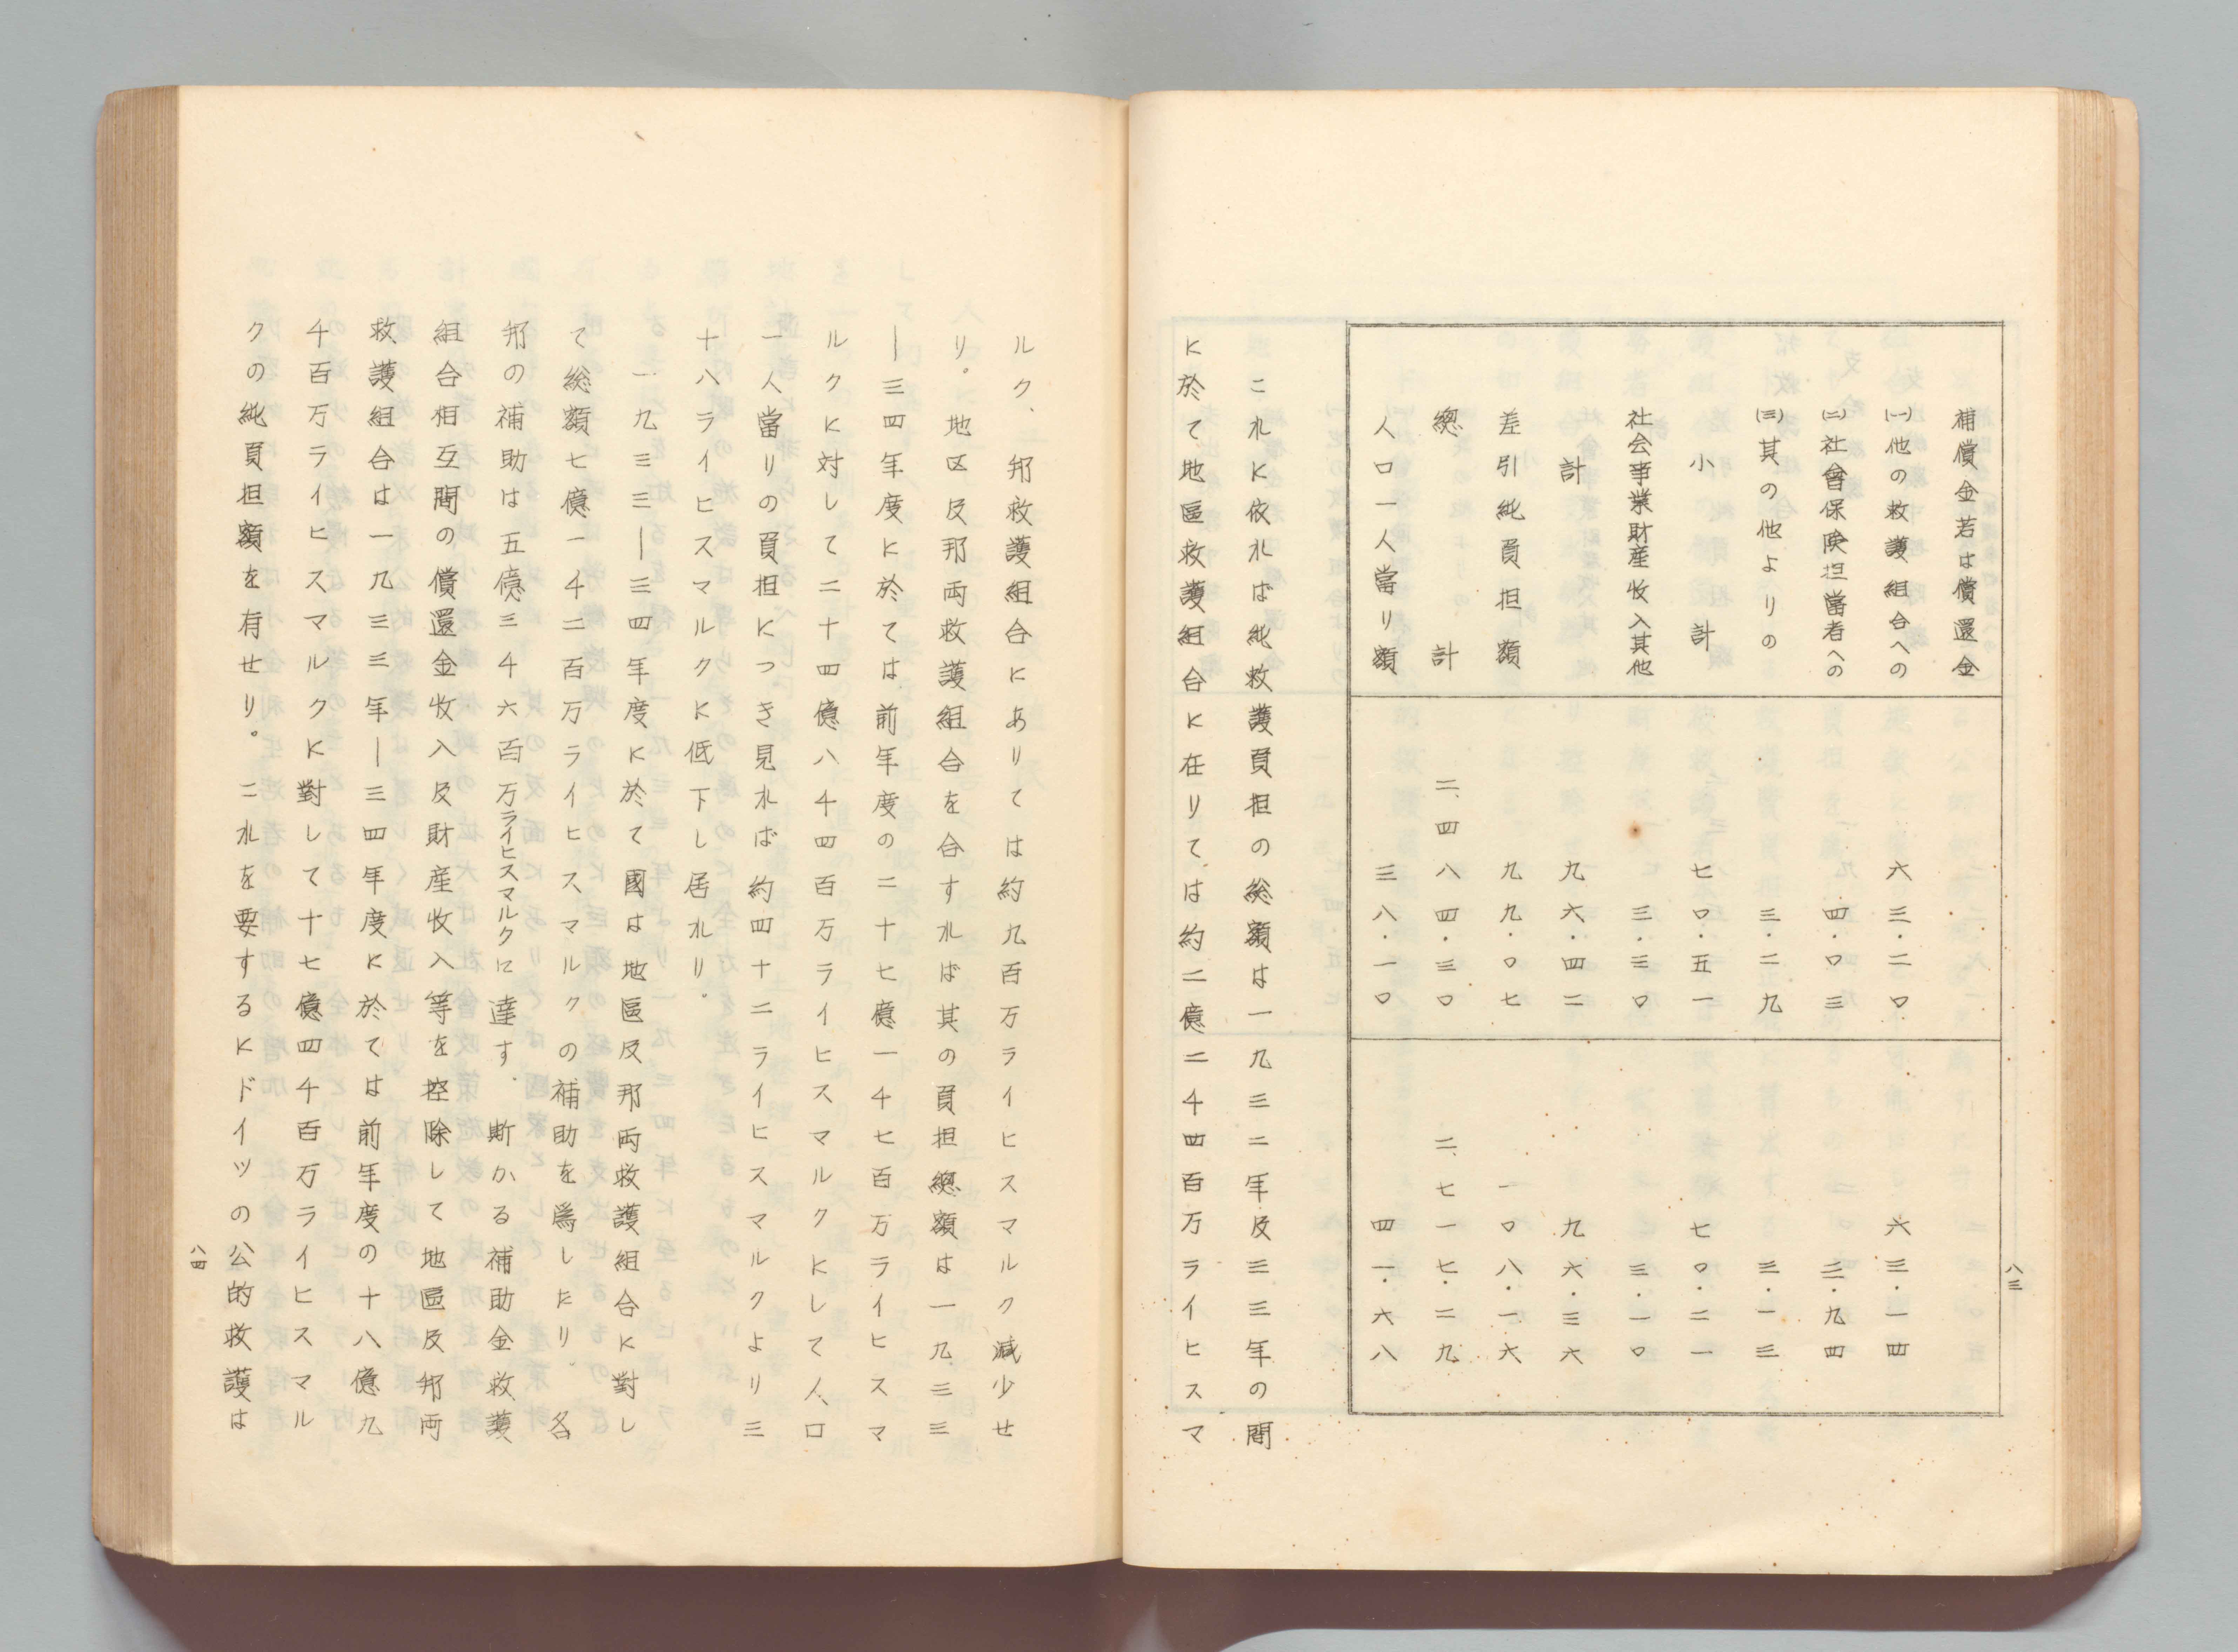 八三
補償金若は償還金
(一)他の救護組合への 六三・二〇 六三・一四
(二)社會保険担當者への 四・〇三 三・九四
(三)其の他よりの 三・二九 三・一三
小計 七〇・五一 七〇・二一
社会事業財産收入其他 三・三〇 三・一〇
計 九六・四二 九六・三六
差引純負担額 九九・〇七 一〇八・一六
總計 二、四八四・三〇 二、七一七・二九
人口一人當り額 三八・一〇 四一・六八
これに依れば純救護負担の総額は一九三二年及三三年の間
に於て地區救護組合に在りては約二億二千四百万ライヒスマ
ルク、邦救護組合にありては約九百万ライヒスマルク減少せ
り。地区及邦両救護組合を合すれば其の負担總額は一九三三
―三四年度に於ては前年度の二十七億一千七百万ライヒスマ
ルクに対して二十四億八千四百万ライヒスマルクにして人口
一人當りの負担につき見れば約四十二ライヒスマルクより三
十八ライヒスマルクに低下し居れり。
一九三三―三四年度に於て國は地區及邦両救護組合に對し
て総額七億一千二百万ライヒスマルクの補助を爲したり。各
邦の補助は五億三千六百万ライヒスマルクに達す.斯かる補助金救護
組合相互間の償還金收入及財産收入等を控除して地區及邦両
救護組合は一九三三年―三四年度に於ては前年度の十八億九
千百万ライヒスマルクに對して十七億四千百万ライヒスマル
クの純負担額を有せり。これを要するにドイツの公的救護は
八四